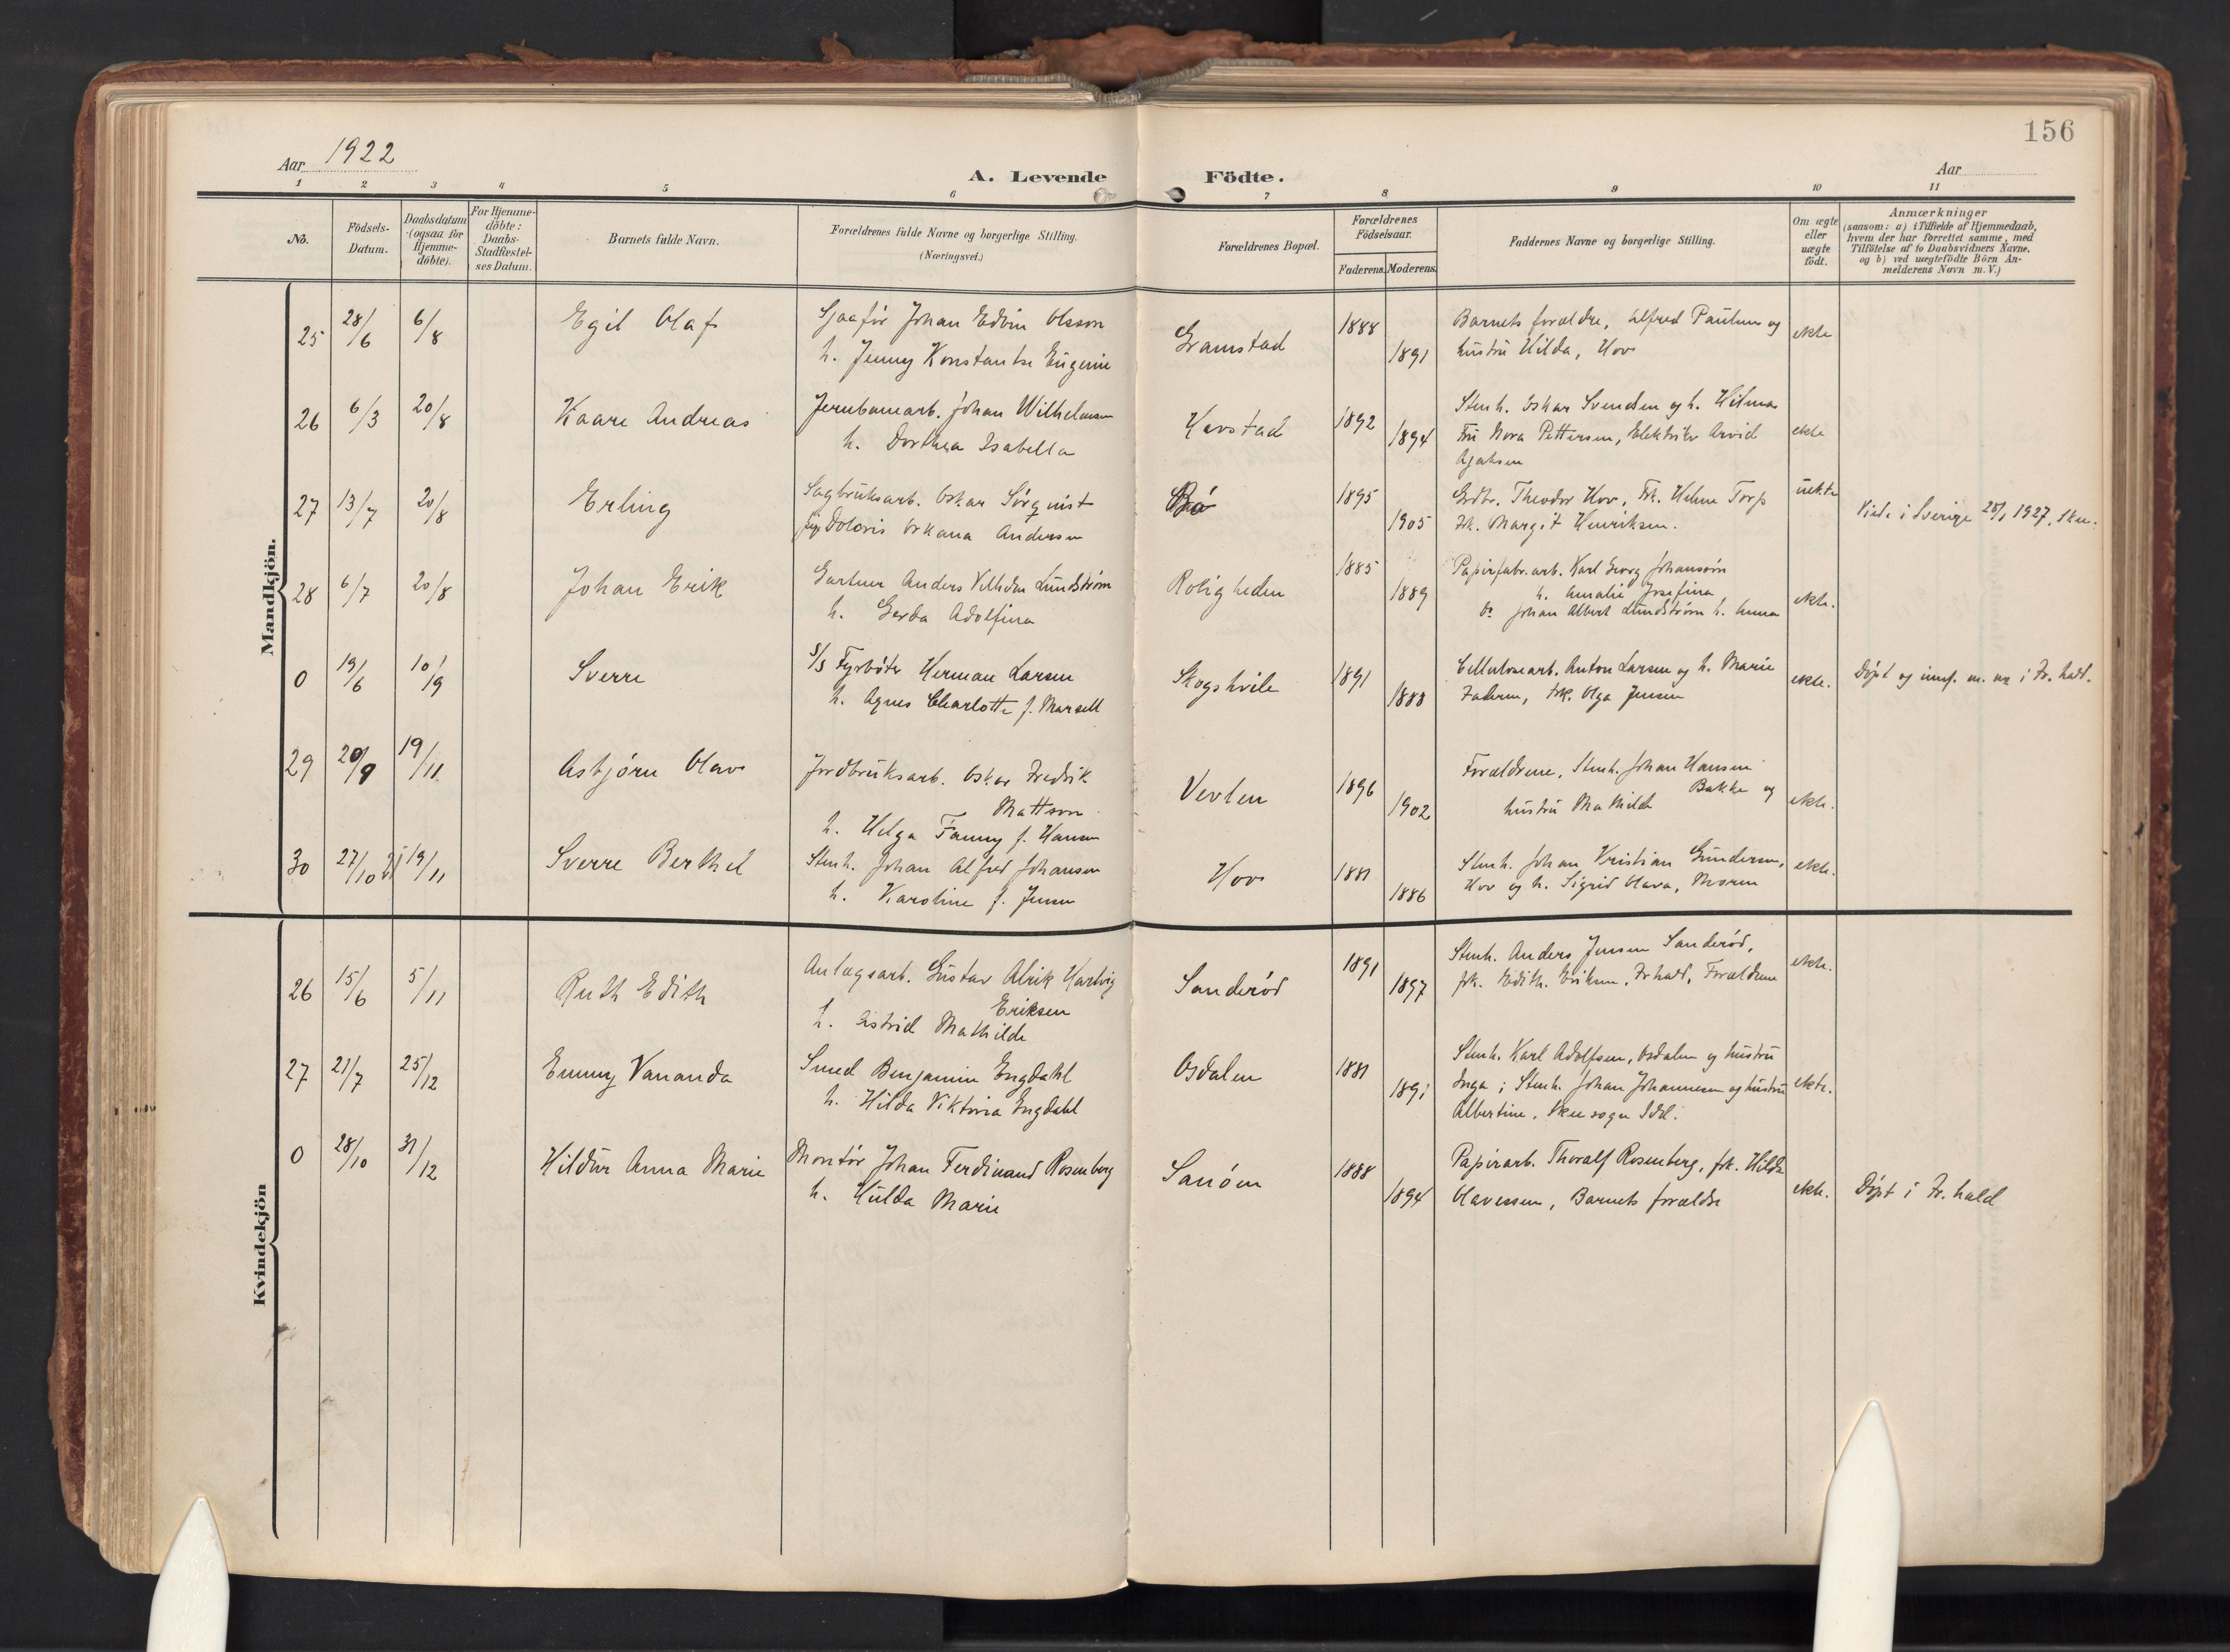 156
Aar 1922
A. Levende Födte.
Aar
1 2 3 4 5 6 7 8 9 10 11
No.
Födsels-
Datum.
Daabsdatum
(ogsaa for
Hjemme-
döbte).
For Hjemme-
döbte:
Daabs-
Stadfæstel-
ses Datum.
Barnets fulde Navn.
Forældrenes fulde Navne og borgerlige Stilling.
(Næringsvei.)
Forældrenes Bopæl.
Forældrenes
Födselsaar.
Faderens. Moderens.
Faddernes Navne og borgerlige Stilling.
Om ægte
eller
uægte
födt.
Anmærkninger
(saasom: a) i Tilfælde af Hjemmedaab,
hvem der har forrettet samme, med
Tilföielse af to Daabsvidners Navne.
og b) ved uægtefödte Börn An-
melderens Navn m. V.)
Mandkjön.
25 28/6 6/8 Egil Olaf Sjaafør Johan Edvin Olsson Gramstad 1888 Barnets forældre, Alfred Paulsen og ekte
h. Jenny Konstantse Eugenie 1891 hustru Hilda, Hov
26 6/3 20/8 Kaare Andreas Jernbanearb. Johan Wilhelmsen Havstad 1892 Stenh. Oskar Svendsen og h. Hilma ekte
h. Dorthea Isabella 1894 Fru Nora Pettersen, Elektriker Arvid
27 13/7 20/8 Erling Sagbruksarb. Oskar Sørqvist Bø 1895 Grdbr. Theodor Hov, Frk. Helene Torp uekte
pige Doloris Orkana Andersen 1905 Frk. Margit Henriksen. Viede i Sverige 1927, Skee.
28 6/7 20/8 Johan Erik Gartner Anders Vilhelm Lundstrøm Roligheden 1885 Papirfabr.arb. Karl Georg Johanssøn
h. Gerda Adolfina 1889 h. Amalie Josefina ekte.
Do Johan Albert Lundstrøm h. Anna
0 19/6 10/9 Sverre S/S Fyrbøter Herman Larsen Skogshvile 1891 Cellulosearb. Anton Larsen og h. Marie ekte. Døpt og innf. m. nr i Fr.hald.
h. Agnes Charlotte f. Marsell 1888 Faderen, Frk. Olga Jensen
29 20/9 19/11 Asbjørn Olav Jordbruksarb. Oskar Fredrik Vevlen 1896 Forældrene, Stenh. Johan Hansen
Mattson 1902 Bakke og
h. Helga Fanny f. Hansen hustru Mathilde ekte.
30 27/10 21 19/11 Sverre Berthel Stenh. Johan Alfred Johansen Hov 1881 Stenh. Johan Kristian Gundersen, ekte.
h. Karoline f. Jensen 1886 Hov og h. Sigrid Olava, Moren
Kvindekjön
26 15/6 5/11 Ruth Edith Anlægsarb. Gustav Alrik Hartvig Sanderød 1891 Stenh. Anders Jensen Sanderød, ekte.
Eriksen 1897 frk. Edith Eriksen, Fr.hald, Forældrene
h. Astrid Mathilde
27 21/7 25/12 Emmy Vananda Smed Benjamin Engdahl Osdalen 1881 Stenh. Karl Adolfsen, Osdalen og hustru
h. Hilda Viktoria Engdahl 1891 Inga; Stenh. Johan Johannesen og hustru ekte.
Albertine, Skee sogn
0 28/10 31/12 Hildur Anna Marie Montør Johan Ferdinand Rosenberg Sanöen 1888 Papirarb. Thoralf Rosenberg, frk. Hilda
h. Hulda Marie 1894 Olavessen, Barnets forældre ekte. Døpt i Fr.hald